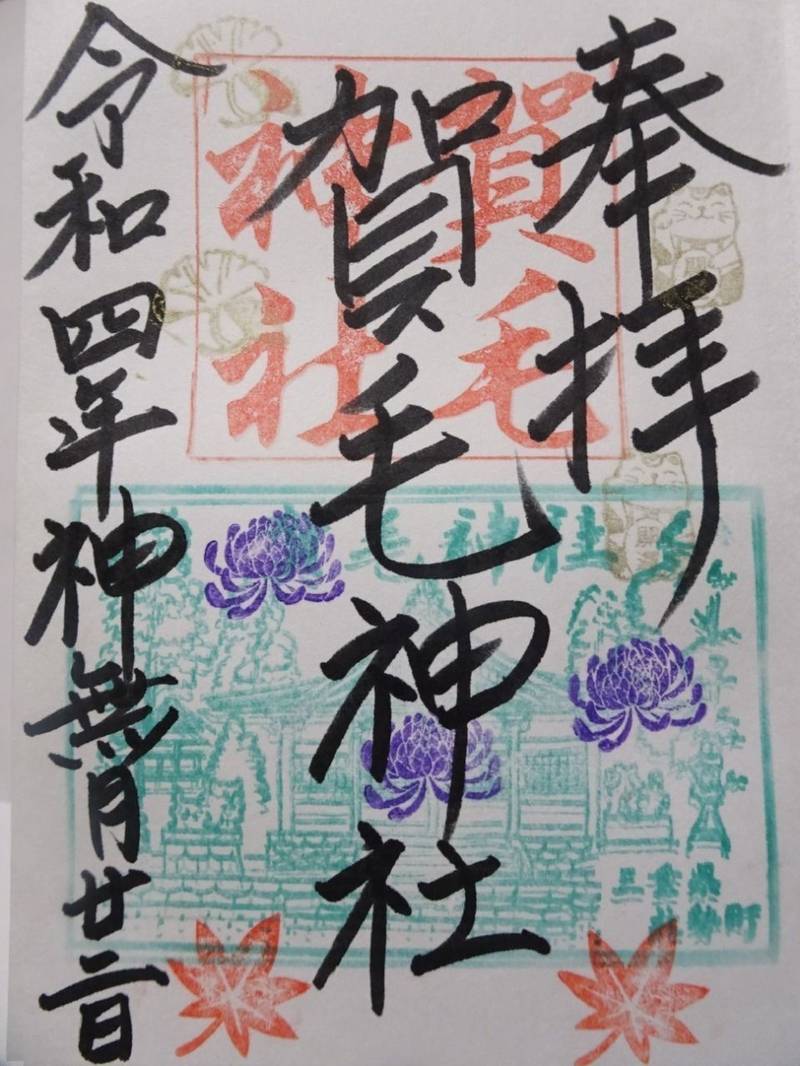 奉拝
賀毛神社
令和四年神無月廿二日
賀毛
神社
毛神社
三重県
北勢町